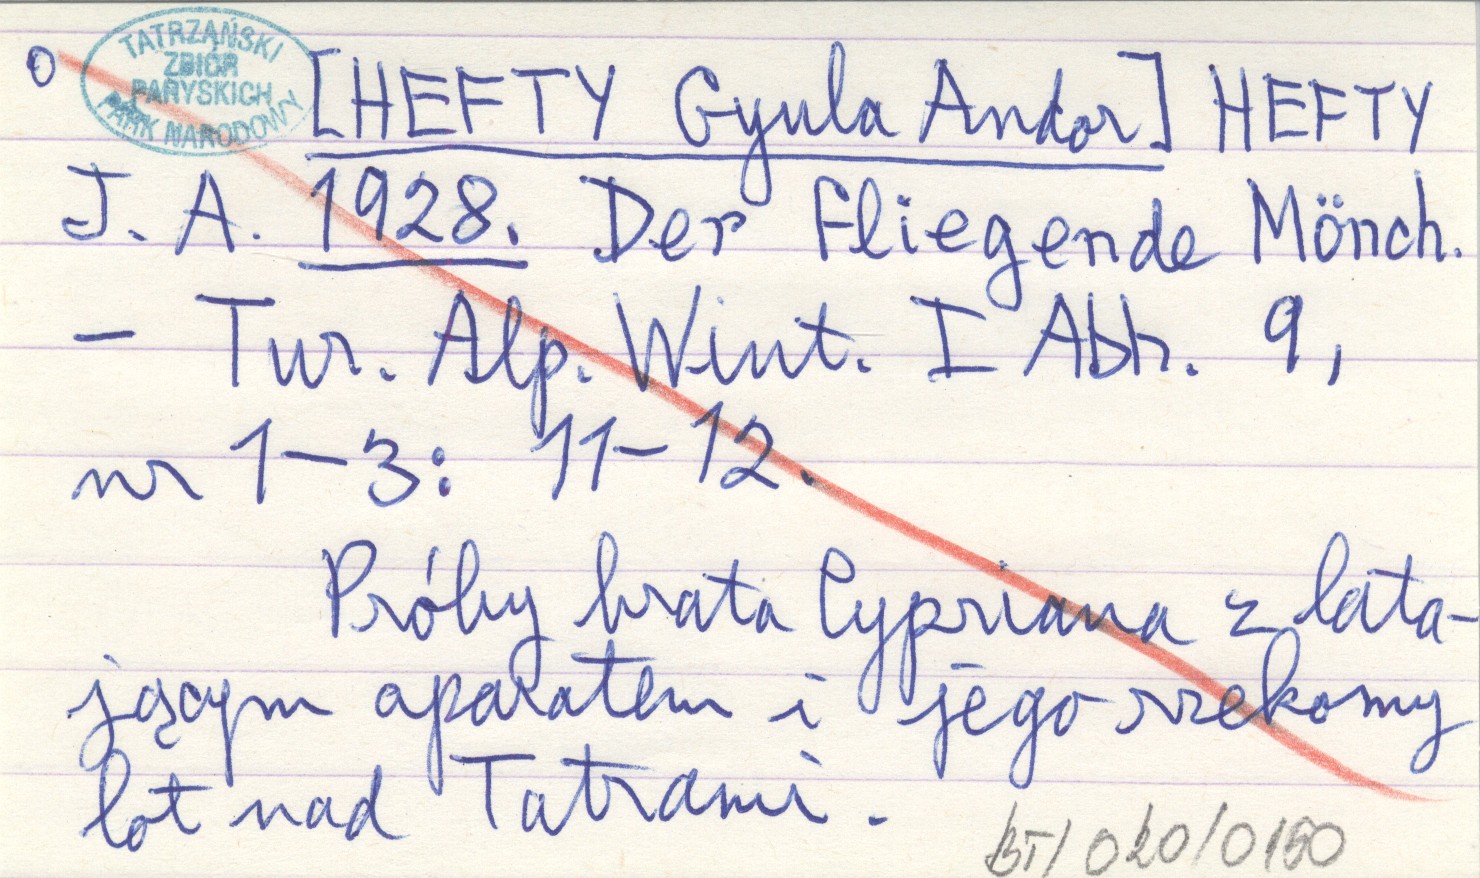 O
TATRZAŃSKI
ZBIÓR
PARYSKICH
PARK NARODOWY
[HEFTY Gyula Andor] HEFTY
J. A. 1928. Der Fliegende Mönch.
– Tur. Alp. Wint. I Abh. 9,
nr 1–3: 11–12.
Próby brata Cypriana z lata-
jącym aparatem i jego rzekomy
lot nad Tatrami.
BT/020/0150